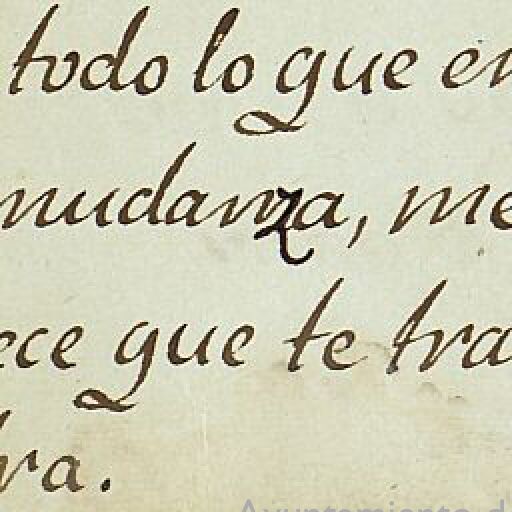 todo lo que en
mudanza, me
ece que te tra
ra.
Ayuntamiento d